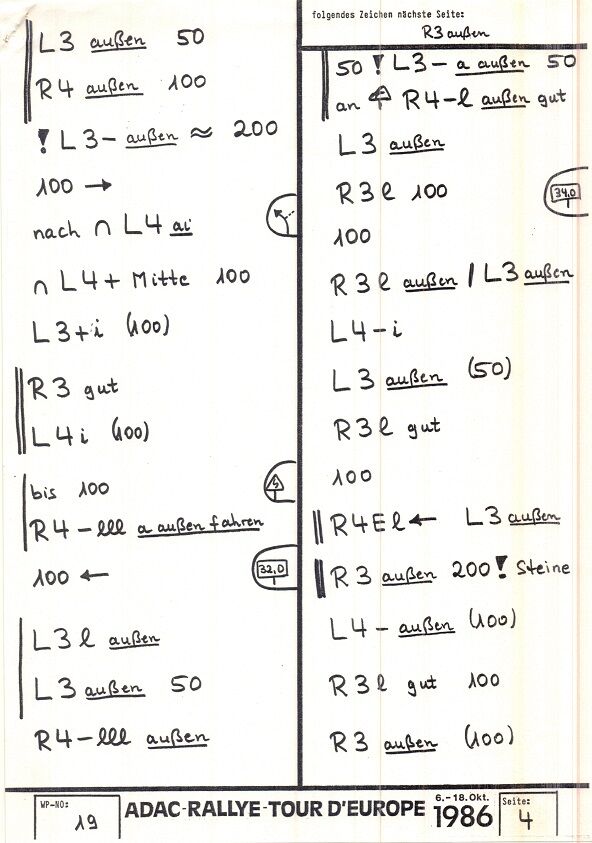 L3 außen 50
R4 außen 100
! L3- außen ≈ 200
100 →
nach ∩ L4 ai
∩ L4+ Mitte 100
L3+i (100)
R3 gut
L4i (100)
bis 100
R4-lll a außen fahren
100 ←
32,0
L3l außen
L3 außen 50
R4-lll außen
folgendes Zeichen nächste Seite:
R3 außen
50 ! L3- a außen 50
an R4-l außen gut
L3 außen
R3l 100
34,0
100
R3l außen / L3 außen
L4-i
L3 außen (50)
R3l gut
100
R4El ← L3 außen
R3 außen 200 ! Steine
L4- außen (100)
R3l gut 100
R3 außen (100)
WP-NO:
19
ADAC-RALLYE-TOUR D'EUROPE
6.-18.Okt.
1986
Seite:
4